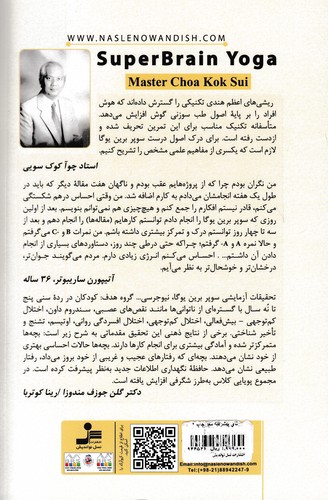 WWW.NASLENOWANDISH.COM
SuperBrain Yoga
Master Choa Kok Sui
ریشی‌های اعظم هندی تکنیکی را گسترش داده‌اند که هوش
افراد را بر پایهٔ اصول طب سوزنی گوش افزایش می‌دهد.
متأسفانه تکنیک مناسب برای این تمرین تحریف شده و
ازدست رفته است. برای درک اصول درست سوپر برین یوگا
لازم است که یکسری از مفاهیم علمی مشخص را تشریح کنیم.
استاد چوآ کوک سویی
من نگران بودم چرا که از پروژه‌هایم عقب بودم و ناگهان هفت مقالهٔ دیگر که باید در
طول یک هفته انجامشان می‌دادم به کارم اضافه شد. من وقتی احساس درهم شکستگی
می‌کنم، قادر نیستم افکارم را جمع کنم و هیچ‌چیزی هم نمی‌توانم بنویسم. بعد از اولین
روزی که سوپر برین یوگا را انجام دادم توانستم کارهایم (مقاله‌ها) را انجام دهم و بعد از
سه تا چهار روز توانستم درک و تمرکز بیشتری داشته باشم. من نمرات B و C می‌گرفتم
و حالا نمره A و A- گرفتم؛ چراکه حتی درطی چند روز، دستاوردهای بسیاری از انجام
دادن آن داشتم.. . احساس می‌کنم انرژی زیادی دارم. مردم می‌گویند جوان‌تر،
درخشان‌تر و خوشحال‌تر به نظر می‌آیم.
آتیپورن ساریبوتر، ۳۶ ساله
تحقیقات آزمایشی سوپر برین یوگا، نیوجرسی.. گروه هدف: کودکان در ردهٔ سنی پنج
تا نُه سال با گستره‌ای از ناتوانی‌ها مانند نقص‌های عصبی، سندروم داون، اختلال
کم‌توجهی - بیش‌فعالی، اختلال کم‌توجهی، اختلال افسردگی روانی، اوتیسم، تشنج و
تأخیر شناختی. برخی از نتایج ذهنی این تحقیق مقدماتی به شرح زیر است: بچه‌ها
متمرکزتر شده و آمادگی بیشتری برای انجام کارها دارند. بچه‌ها حالات احساسی بهتری
از خود نشان می‌دهند. بچه‌ای که رفتارهای عجیب و غریبی از خود بروز می‌داد، رفتار
طبیعی نشان می‌دهد. حافظهٔ نگهداری اطلاعات جدید به‌نظر پیشرفت کرده است. در
مجموع پویایی کلاس به‌طرز شگرفی افزایش یافته است.
دکتر گلن جوزف مندوزا /رینا کوتریا
انتشارات نسل نواندیش
info@naslenowandish.com
Tel: (+98-21)88942247-9
نسل نواندیش